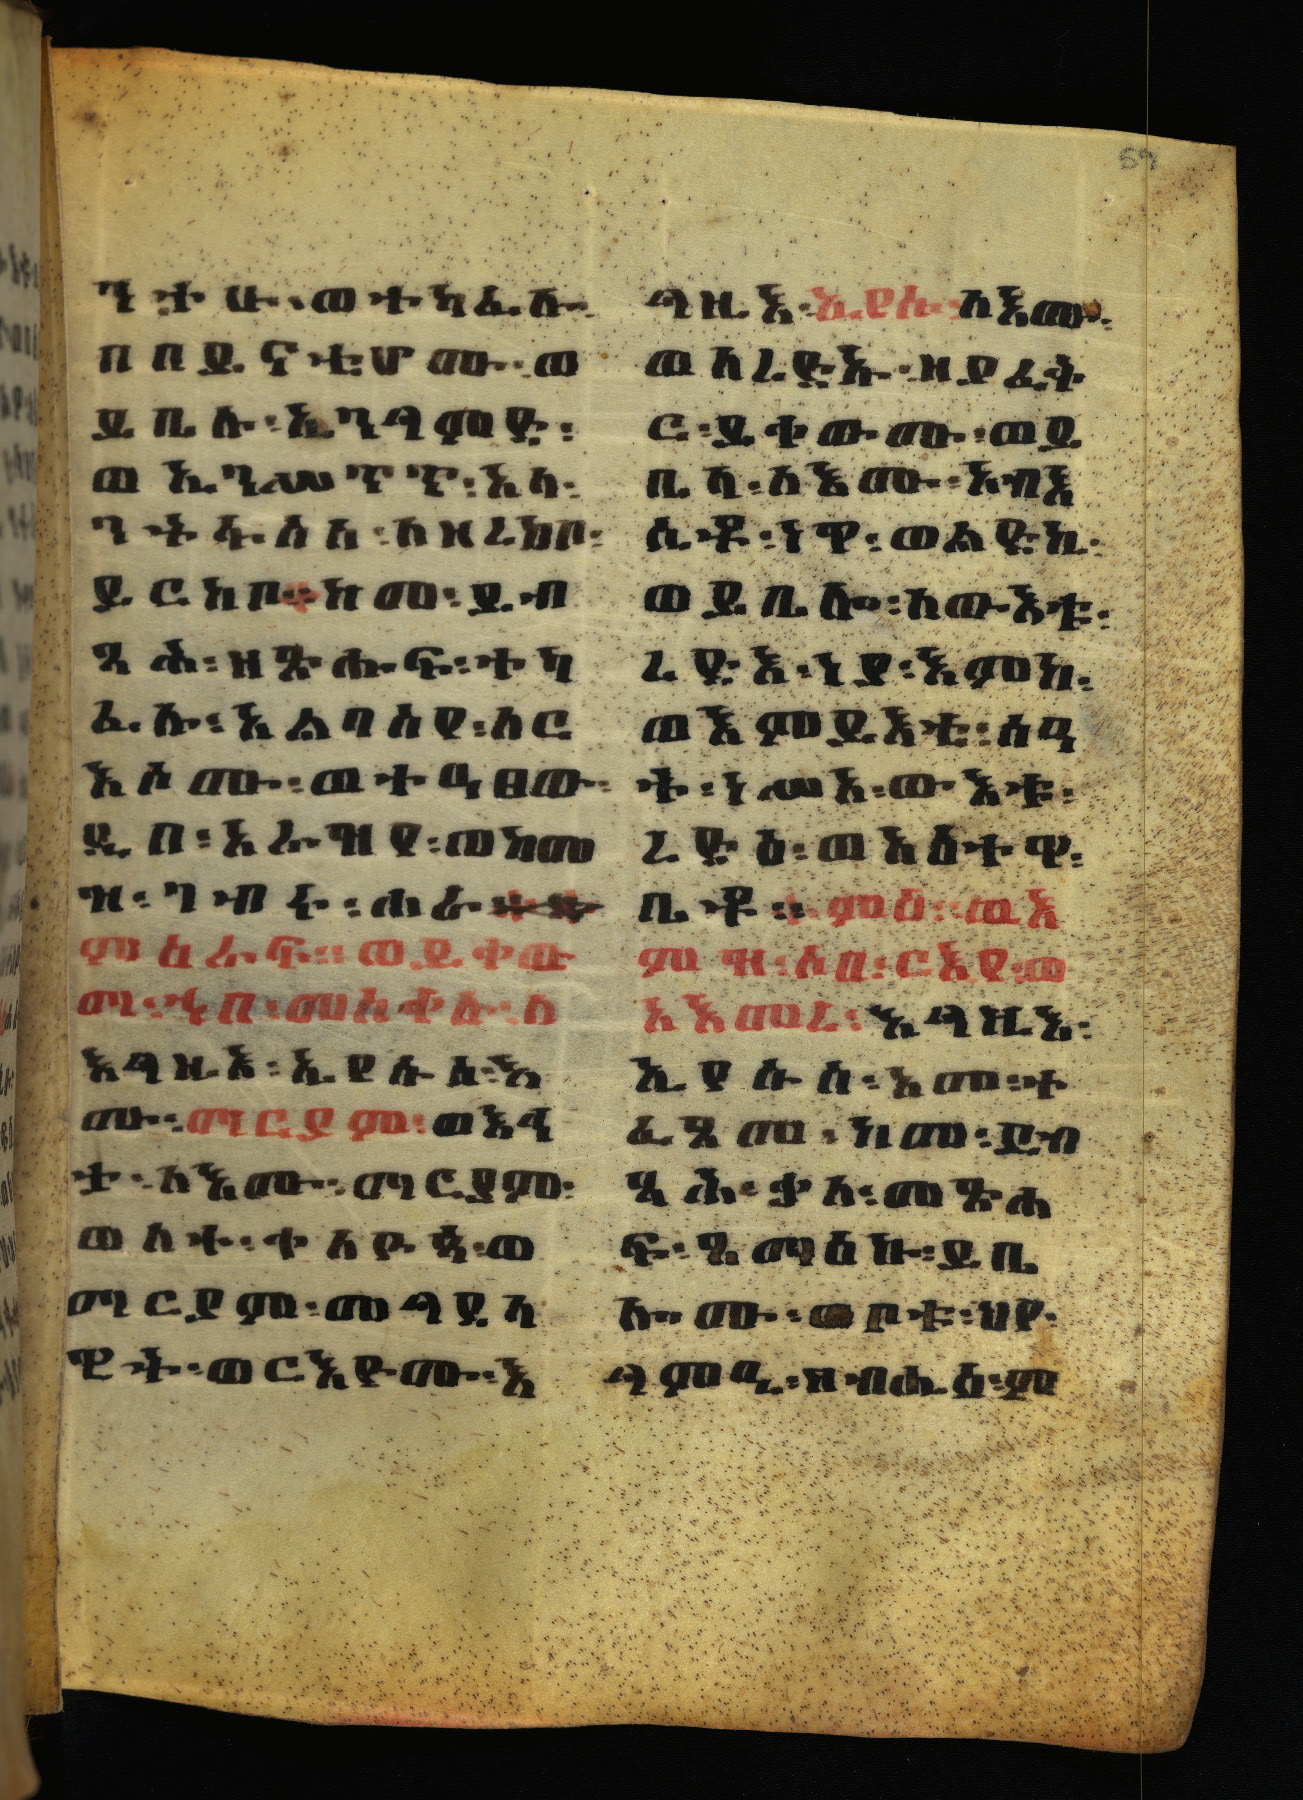 ንተሁ፡ወተካፈሉ፡
በበይናቲሆሙ፡ወ
ይቤሉ፡ኢንግምድ፡
ወኢንሠጥጥ፡አላ፡
ንትፋሰስ፡ለዘረከቦ፡
ይርከቦ፡ከመ፡ይብ
ጻሕ፡ዘጽሑፍ፡ተካ
ፈሉ፡አልባስየ፡ለር
እሶሙ፡ወተዓፀው፡
ዲበ፡አራዝየ፡ወከመ
ዝ፡ገብሩ፡ሐራ፨
ምዕራፍ፡ወይቀው
ማ፡ኀበ፡መስቀሉ፡ለ
እግዚእ፡ኢየሱስ፡እ
ሙ፡ማርያም፡ወእኅ
ቱ፡ለእሙ፡ማርያም፡
ወለተ፡ቀለዮጳ፡ወ
ማርያም፡መግደላ
ዊት፡ወርእዮሙ፡እ
ግዚእ፡ኢየሱስ፡ለእሙ፡
ወለረድኡ፡ዘያፈቅ
ር፡ይቀውሙ፡ወይ
ቤላ፡ለእሙ፡አብእ
ሲቶ፡ነዋ፡ወልድኪ፡
ወይቤሎ፡ለውእቱ፡
ረድእ፡ነያ፡እምከ፡
ወእምይእቲ፡ሰዓ
ት፡ነሥአ፡ውእቱ፡
ረድእ፡ወአእተዋ፡
ቤቶ፡፡ምዕ፡ወእ
ምዝ፡ሶበ፡ርእየ፡ወ
አእመረ፡እግዚእ፡
ኢየሱስ፡ከመ፡ተ
ፈጸመ፡ከመ፡ይብ
ጻሕ፡ቃለ፡መጽሐ
ፍ፡ጸማዕኩ፡ይቤ
ሎሙ፡ወቦቱ፡ህየ፡
ጋምዔ፡ዘብሒዕ፡ም